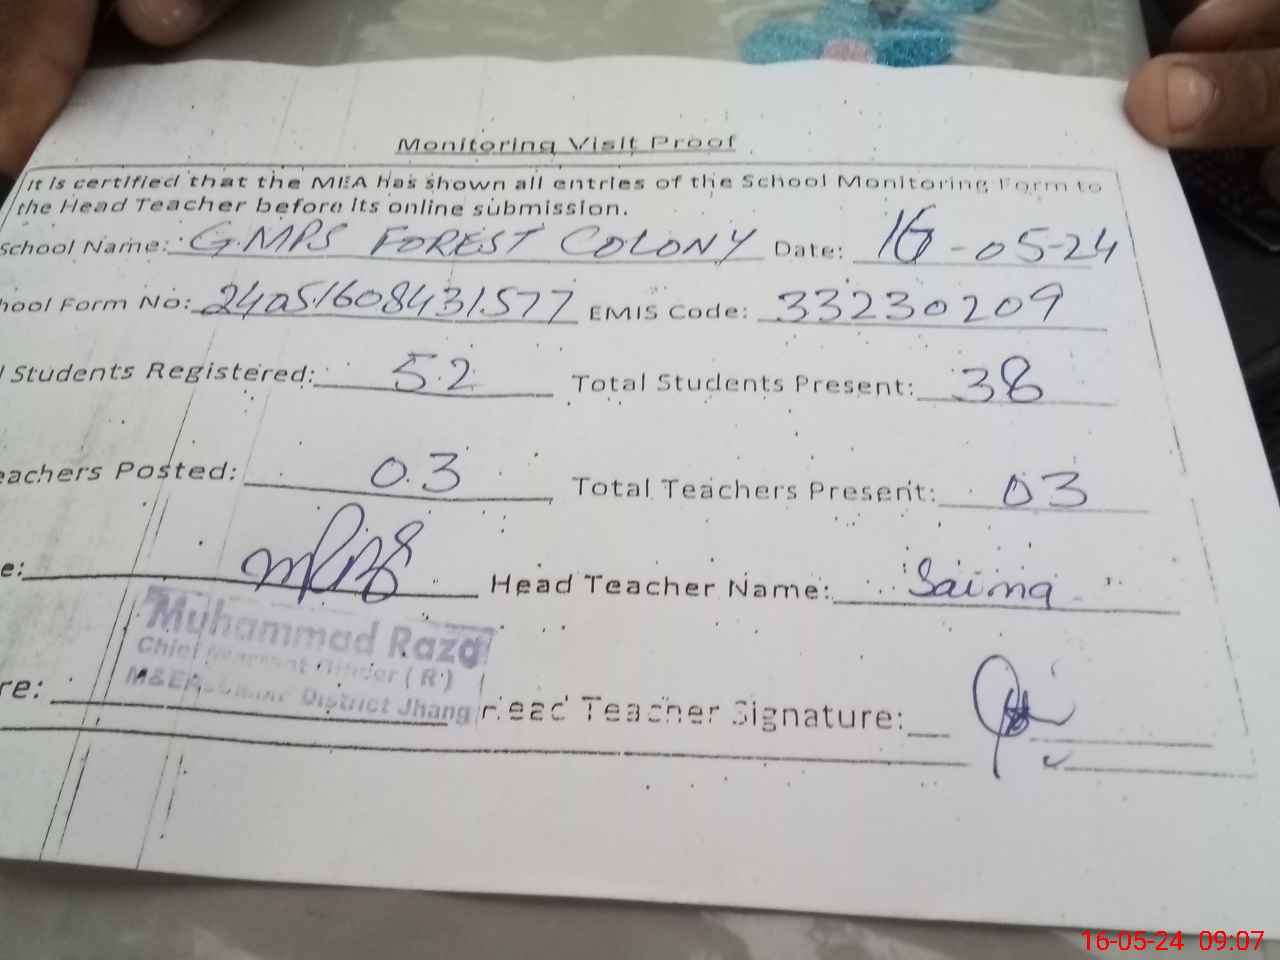 Monitoring Visit Proof
It is certified that the MEA has shown all entries of the School Monitoring Form to
the Head Teacher before its online submission.
School Name: GMPS FOREST COLONY Date: 16-05-24
hool Form No: 24051608431577 EMIS Code: 33230209
l Students Registered: 52 Total Students Present: 38
eachers Posted: 03 Total Teachers Present: 03
e: Head Teacher Name: Saima
Muhammad Raza
Chief (R)
M&E District Jhang
re: Head Teacher Signature:
16-05-24 09:07